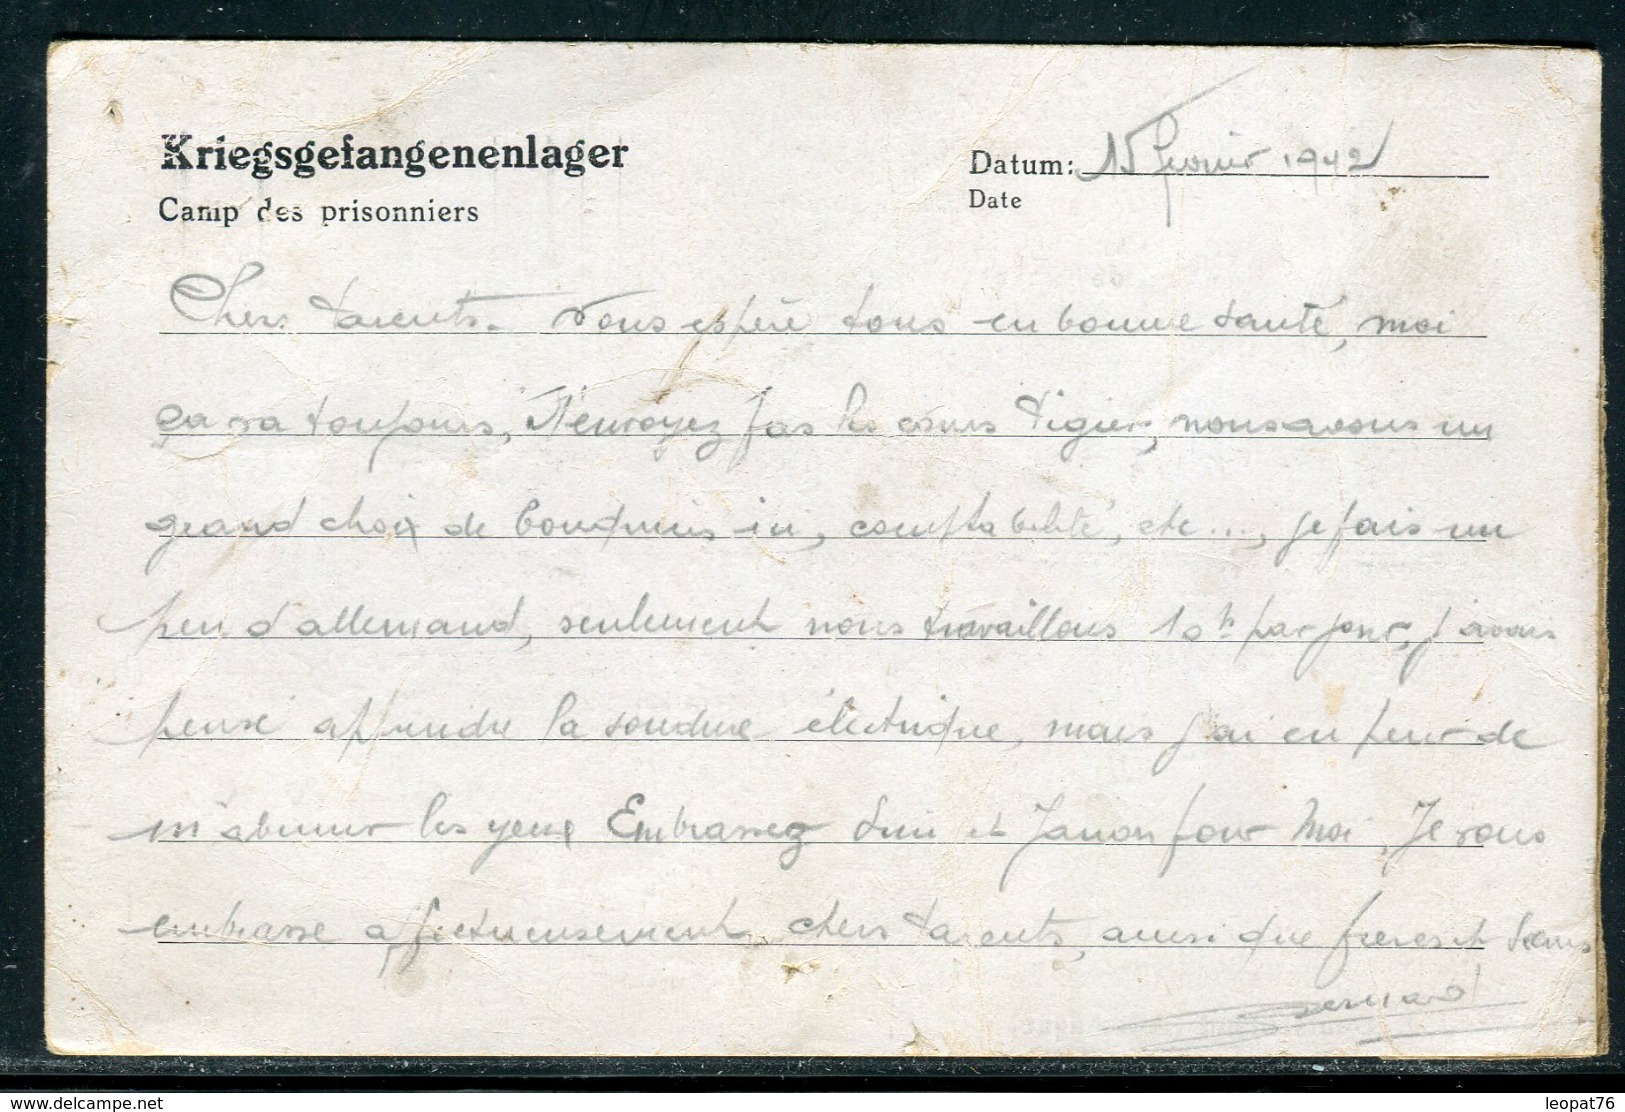 Kriegsgefangenenlager
Camp des prisonniers
Datum: 15 Février 1942
Date
Chers Parents. Vous espère tous en bonne santé, moi
ça va toujours, N'envoyez pas les cours Pigier, nous avons un
grand choix de bouquins ici, comptabilité, etc..., je fais un
peu d'allemand, seulement nous travaillons 10h par jour, j'avais
pensé apprendre la soudure électrique, mais j'ai eu peur de
m'abimer les yeux Embrassez et pour Moi, Je vous
embrasse affectueusement, chers Parents, ainsi que frères et Sœurs
Bernard
www.delcampe.net
leopat76